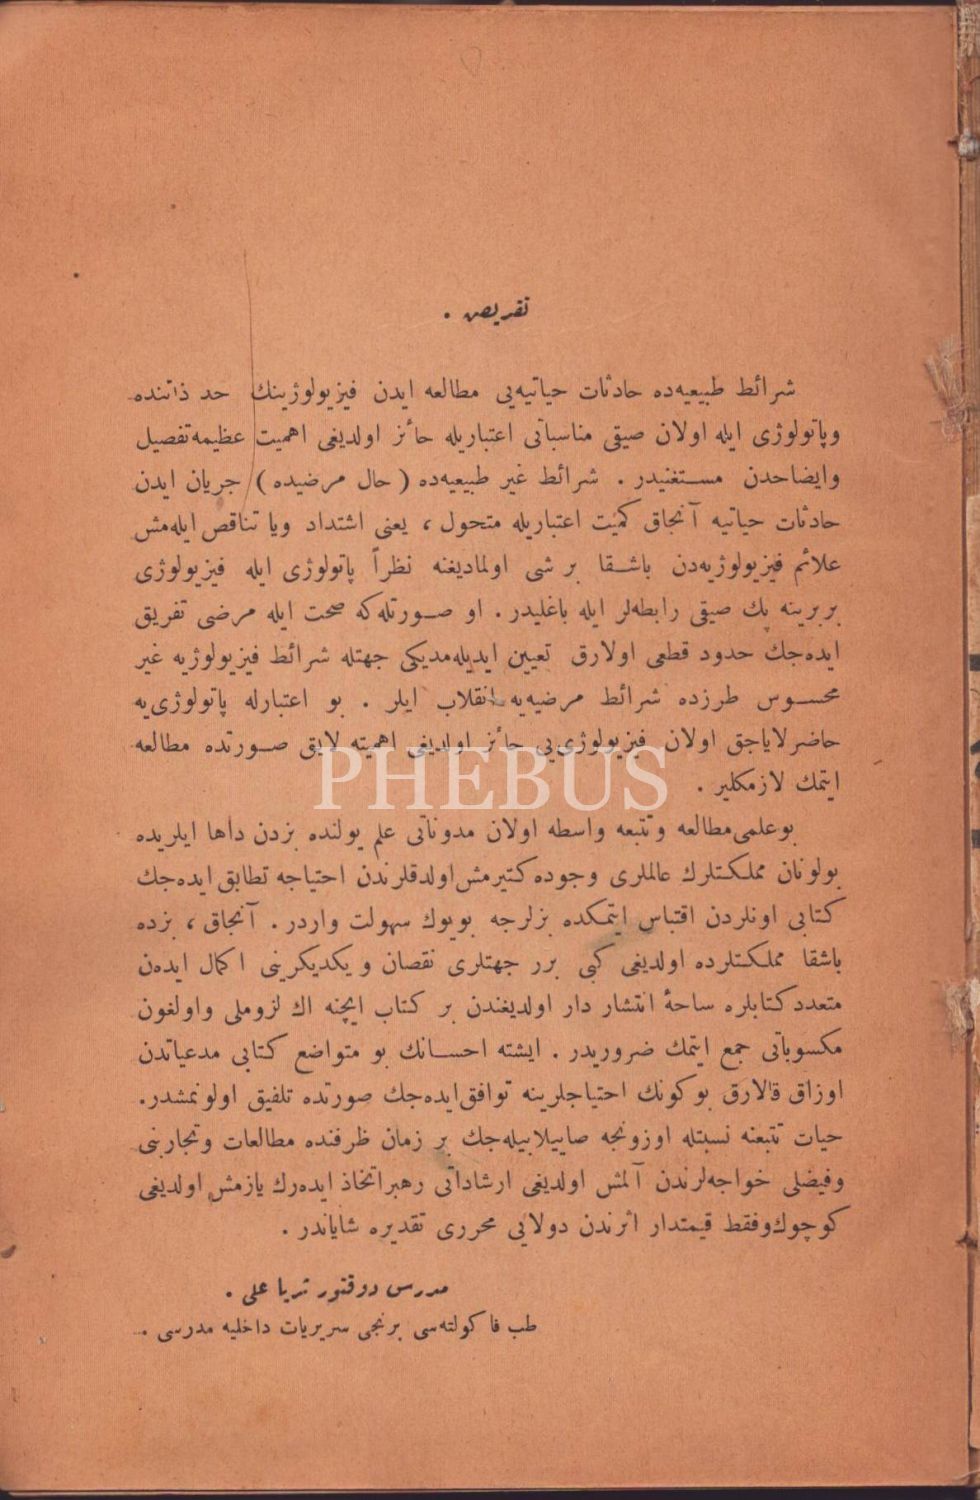 تقریض .
شرائط طبیعیه‌ده حادثات حیاتیه‌یی مطالعه ایدن فیزیولوژینك حد ذاتنده
وپاتولوژی ایله اولان صیقی مناسباتی اعتباریله حائز اولدیغی اهمیت عظیمه تفصیل
وایضاحدن مستغنیدر . شرائط غیر طبیعیه‌ده ( حال مرضیده ) جریان ایدن
حادثات حیاتیه آنجاق کمیت اعتباریله متحول ، یعنی اشتداد ویا تناقص ایله‌مش
علائم فیزیولوژیه‌دن باشقا بر شی اولمادیغنه نظراً پاتولوژی ایله فیزیولوژی
بربرینه پك صیقی رابطه‌لر ایله باغلیدر . او صورتله‌که صحت ایله مرضی تفریق
ایده‌جك حدود قطعی اولارق تعیین ایدیله‌مدیکی جهتله شرائط فیزیولوژیه غیر
محسوس طرزده شرائط مرضیه‌یه انقلاب ایلر . بو اعتبارله پاتولوژی‌یه
حاضرلایاجق اولان فیزیولوژی‌یی حائز اولدیغی اهمیته لایق صورتده مطالعه
ایتمك لازمکلیر .
PHEBUS
بوعلمی مطالعه وتتبعه واسطه اولان مدوناتی علم یولنده بزدن داها ایلریده
بولونان مملکتلرك عالملری وجوده کتیرمش اولدقلرندن احتیاجه تطابق ایده‌جك
کتابی اونلردن اقتباس ایتمکده بزلرجه بویوك سهولت واردر . آنجاق ، بزده
باشقا مملکتلرده اولدیغی کبی برر جهتلری نقصان ویکدیکرینی اکمال ایدەن
متعدد کتابلره ساحهٔ انتشار دار اولدیغندن بر کتاب ایچنه اك لزوملی واولغون
مکسوباتی جمع ایتمك ضروریدر . ایشته احسانك بو متواضع کتابی مدعیاتدن
اوزاق قالارق بوکونك احتیاجلرینه توافق ایده‌جك صورتده تلفیق اولونمشدر.
حیات تتبعنه نسبتله اوزونجه صاییلابیله‌جك بر زمان ظرفنده مطالعات وتجاربنی
وفیضلی خواجه‌لرندن آلمش اولدیغی ارشاداتی رهبر اتخاذ ایده‌رك یازمش اولدیغی
کوچوك وفقط قیمتدار اثرندن دولایی محرری تقدیره شایاندر .
مدرس دوقتور ثریا علی .
طب فاکولته‌سی برنجی سریریات داخلیه مدرسی .